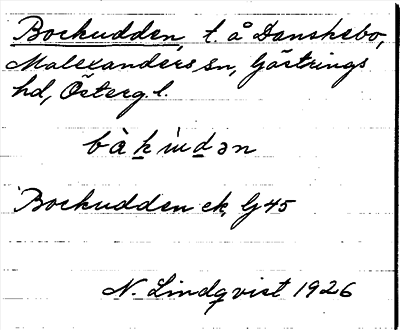 Bockudden, t. å Danskebo,
Malexanders sn, Göstrings
hd, Österg. l.
bàk̲ ùd̲ən
Bockudden ek. G 45
N. Lindqvist 1926